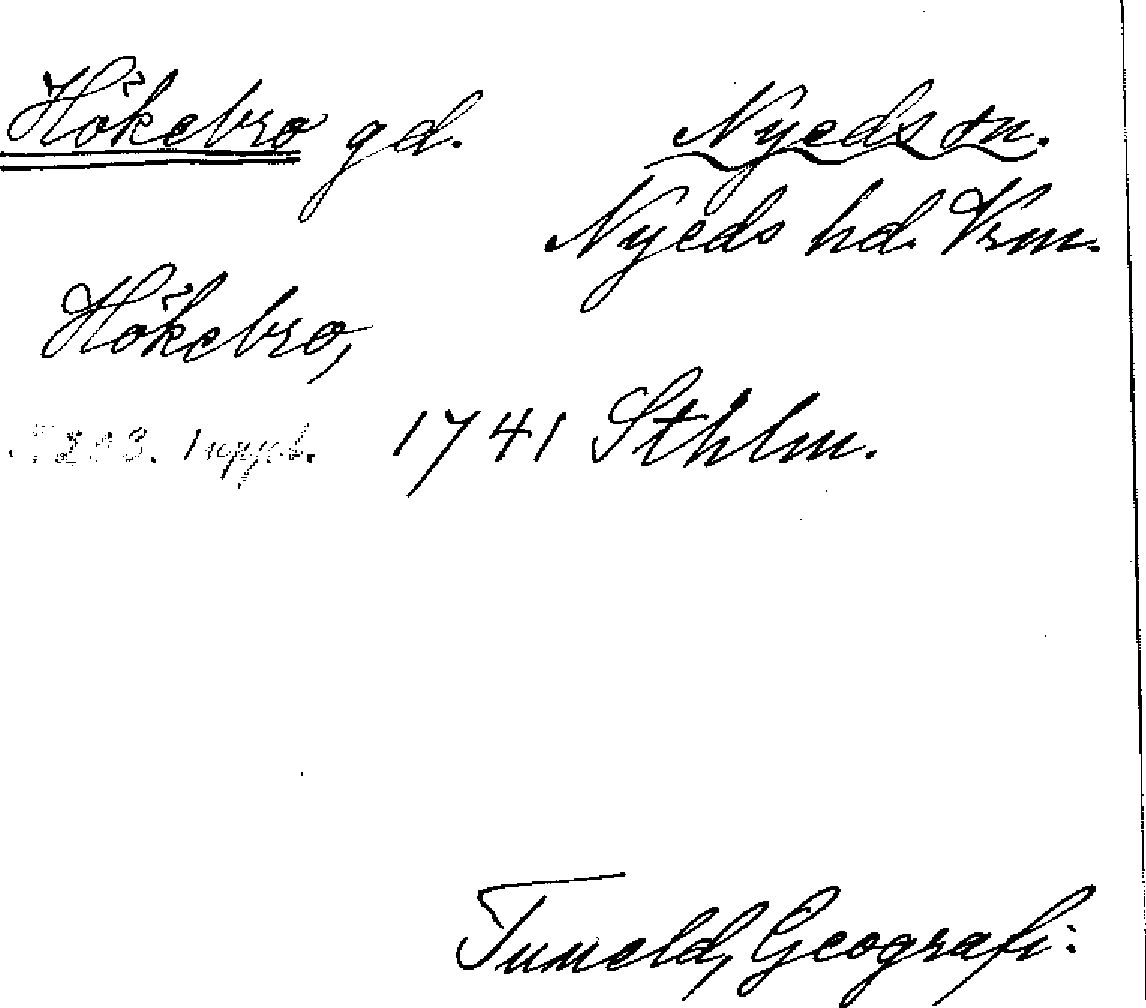 Hökebro gd. Nyeds sn.
Nyeds hd. Vrm.
Hökebro,
S 203. 1 uppl. 1741 Sthlm.
Tuneld, Geografi: